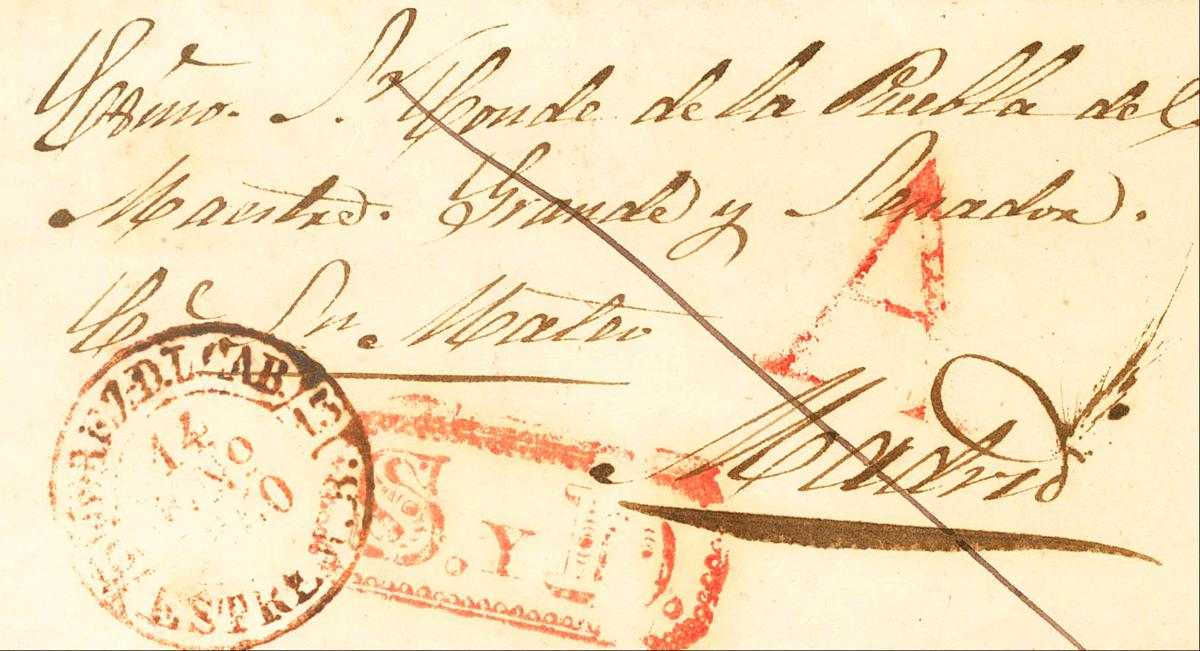 Exmo. Sr. Conde de la Puebla del
Maestre. Grande y Senador.
Ce. Sn. Mateo
A
Madrid
JEREZ D.L. CAB. 13 ESTRE
14
S. Y D.